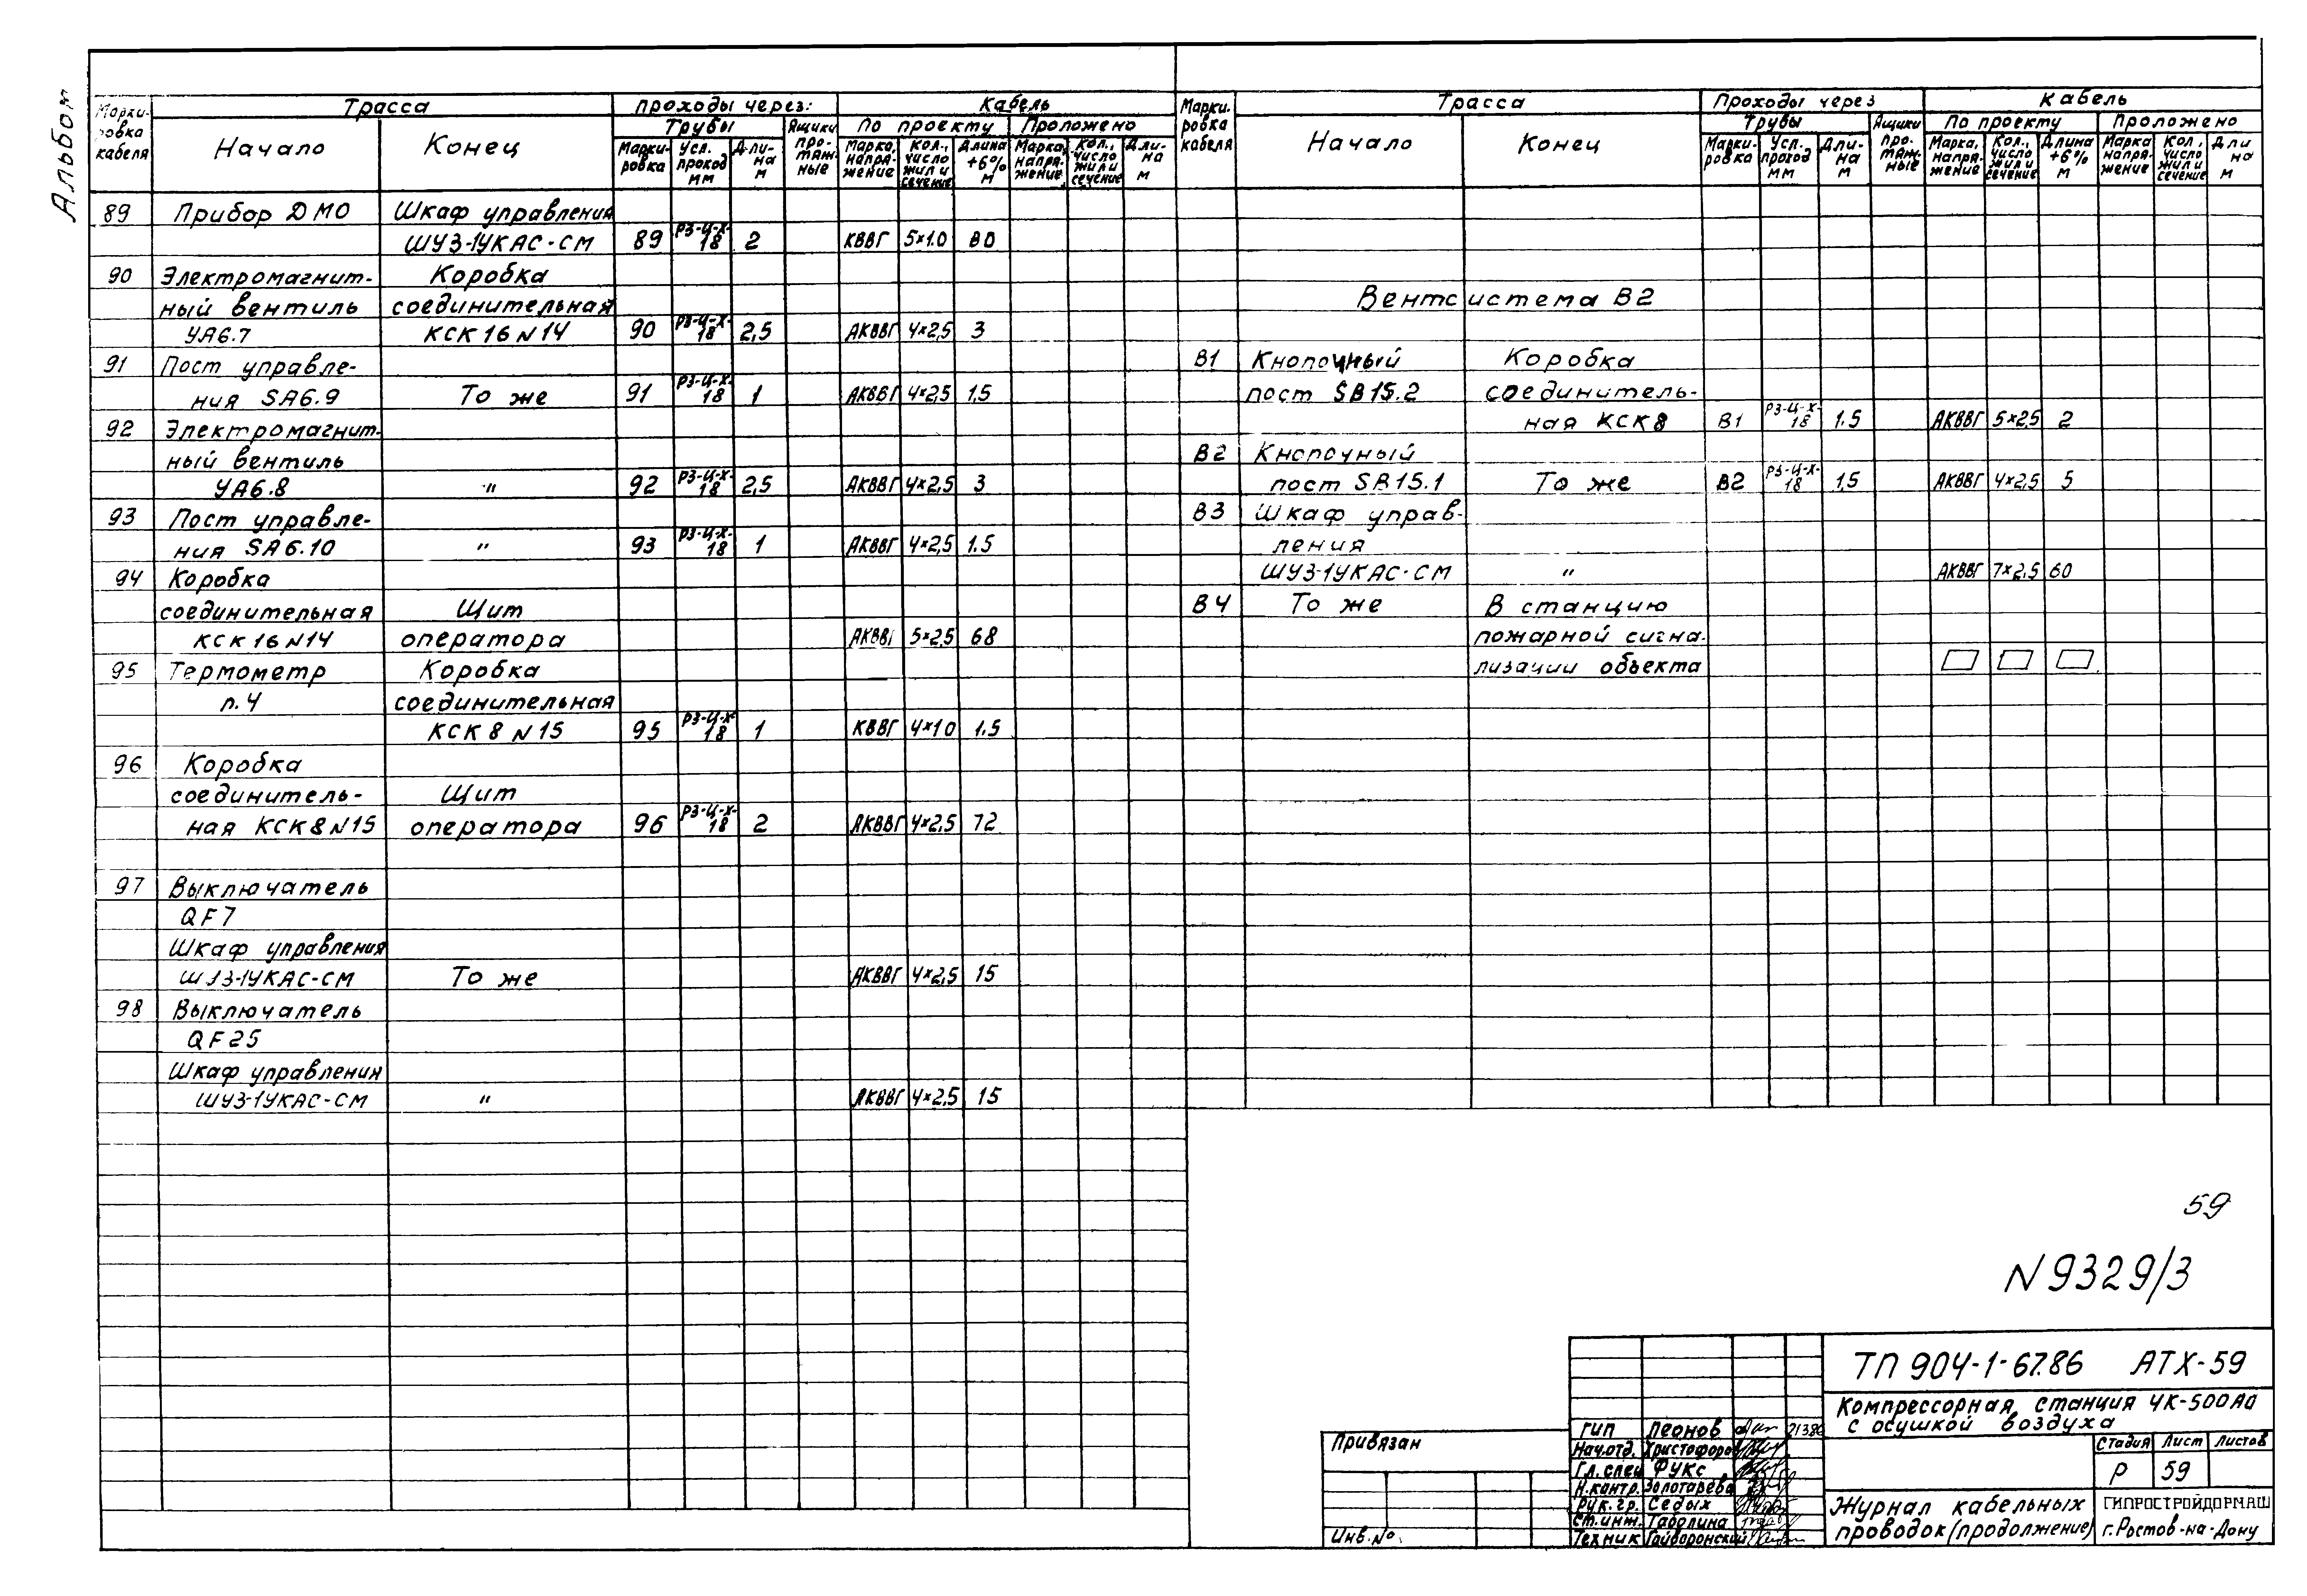 Альбом
Марки-ровка кабеля Трасса Проходы через: Кабель
Начало Конец Трубы Ящики про-тяж-ные По проекту Проложено
Марки-ровка Усл. проход мм Дли-на м Марка, напря-жение Кол., число жил и сечение Длина +6% м Марка, напря-жение Кол., число жил и сечение Дли-на м
89 Прибор ДМО Шкаф управления
ШУЗ-1УКАС-СМ 89 РЗ-Ц-Х-18 2 КВВГ 5×1.0 80
90 Электромагнит- Коробка
ный вентиль соединительная
УА6.7 КСК 16 N14 90 РЗ-Ц-Х-18 2,5 АКВВГ 4×2,5 3
91 Пост управле-
ния SA6.9 То же 91 РЗ-Ц-Х-18 1 АКВВГ 4×2,5 1.5
92 Электромагнит-
ный вентиль
УА6.8 " 92 РЗ-Ц-Х-18 2,5 АКВВГ 4×2,5 3
93 Пост управле-
ния SA6.10 " 93 РЗ-Ц-Х-18 1 АКВВГ 4×2,5 1.5
94 Коробка
соединительная Щит
КСК 16 N14 оператора АКВВГ 5×2,5 68
95 Термометр Коробка
п.4 соединительная
КСК 8 N15 95 РЗ-Ц-Х-18 1 КВВГ 4×1.0 1.5
96 Коробка
соединитель- Щит
ная КСК8 N15 оператора 96 РЗ-Ц-Х-18 2 АКВВГ 4×2,5 72
97 Выключатель
QF7
Шкаф управления
ШУЗ-1УКАС-СМ То же АКВВГ 4×2,5 15
98 Выключатель
QF25
Шкаф управления
ШУЗ-1УКАС-СМ " АКВВГ 4×2,5 15
Марки-ровка кабеля Трасса Проходы через Кабель
Начало Конец Трубы Ящики про-тяж-ные По проекту Проложено
Марки-ровка Усл. проход мм Дли-на м Марка, напря-жение Кол., число жил и сечение Длина +6% м Марка напря-жение Кол, число жил и сечение Дли на м
Вентсистема В2
В1 Кнопочный Коробка
пост SB15.2 соединитель-
ная КСК 8 В1 РЗ-Ц-Х-18 1.5 АКВВГ 5×2,5 2
В2 Кнопочный
пост SB15.1 То же В2 РЗ-Ц-Х-18 1,5 АКВВГ 4×2,5 5
В3 Шкаф управ-
ления
ШУЗ-1УКАС-СМ " АКВВГ 7×2,5 60
В4 То же В станцию
пожарной сигна-
лизации объекта
59
N 9329/3
ТП 904-1-67.86 АТХ-59
Компрессорная станция 4К-500АО
с осушкой воздуха
Стадия Лист Листов
Р 59
Журнал кабельных
проводок (продолжение)
ГИПРОСТРОЙДОРМАШ
г. Ростов-на-Дону
Привязан
Инв.№
ГИП Леонов
Нач.отд. Христофоров
Гл.спец Фукс
Н.контр. Золотарева
Рук.гр. Седых
Ст.инж. Таболина
Техник Гайворонский